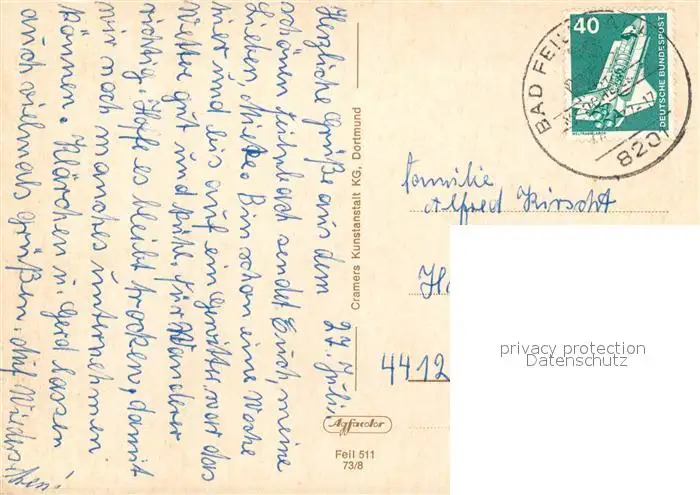 27. Juli
Herzliche Grüße aus dem
schönen Feilnbach sendet Euch, meine
Lieben, Mieke. Bin schon eine Woche
hier und bis auf ein Gewitter war das
Wetter gut und kühl, für Wanderer
richtig. Hoffe es bleibt trocken, damit
wir noch manches unternehmen
können. Klärchen u. Gerd lassen
auch vielmals grüßen. Auf Wiedersehen!
Cramers Kunstanstalt KG, Dortmund
Agfacolor
Feil 511
73/8
40
DEUTSCHE BUNDESPOST
WELTRAUMLABOR
BAD FEIL
8201
Familie
Alfred Kirscht
4412
privacy protection
Datenschutz